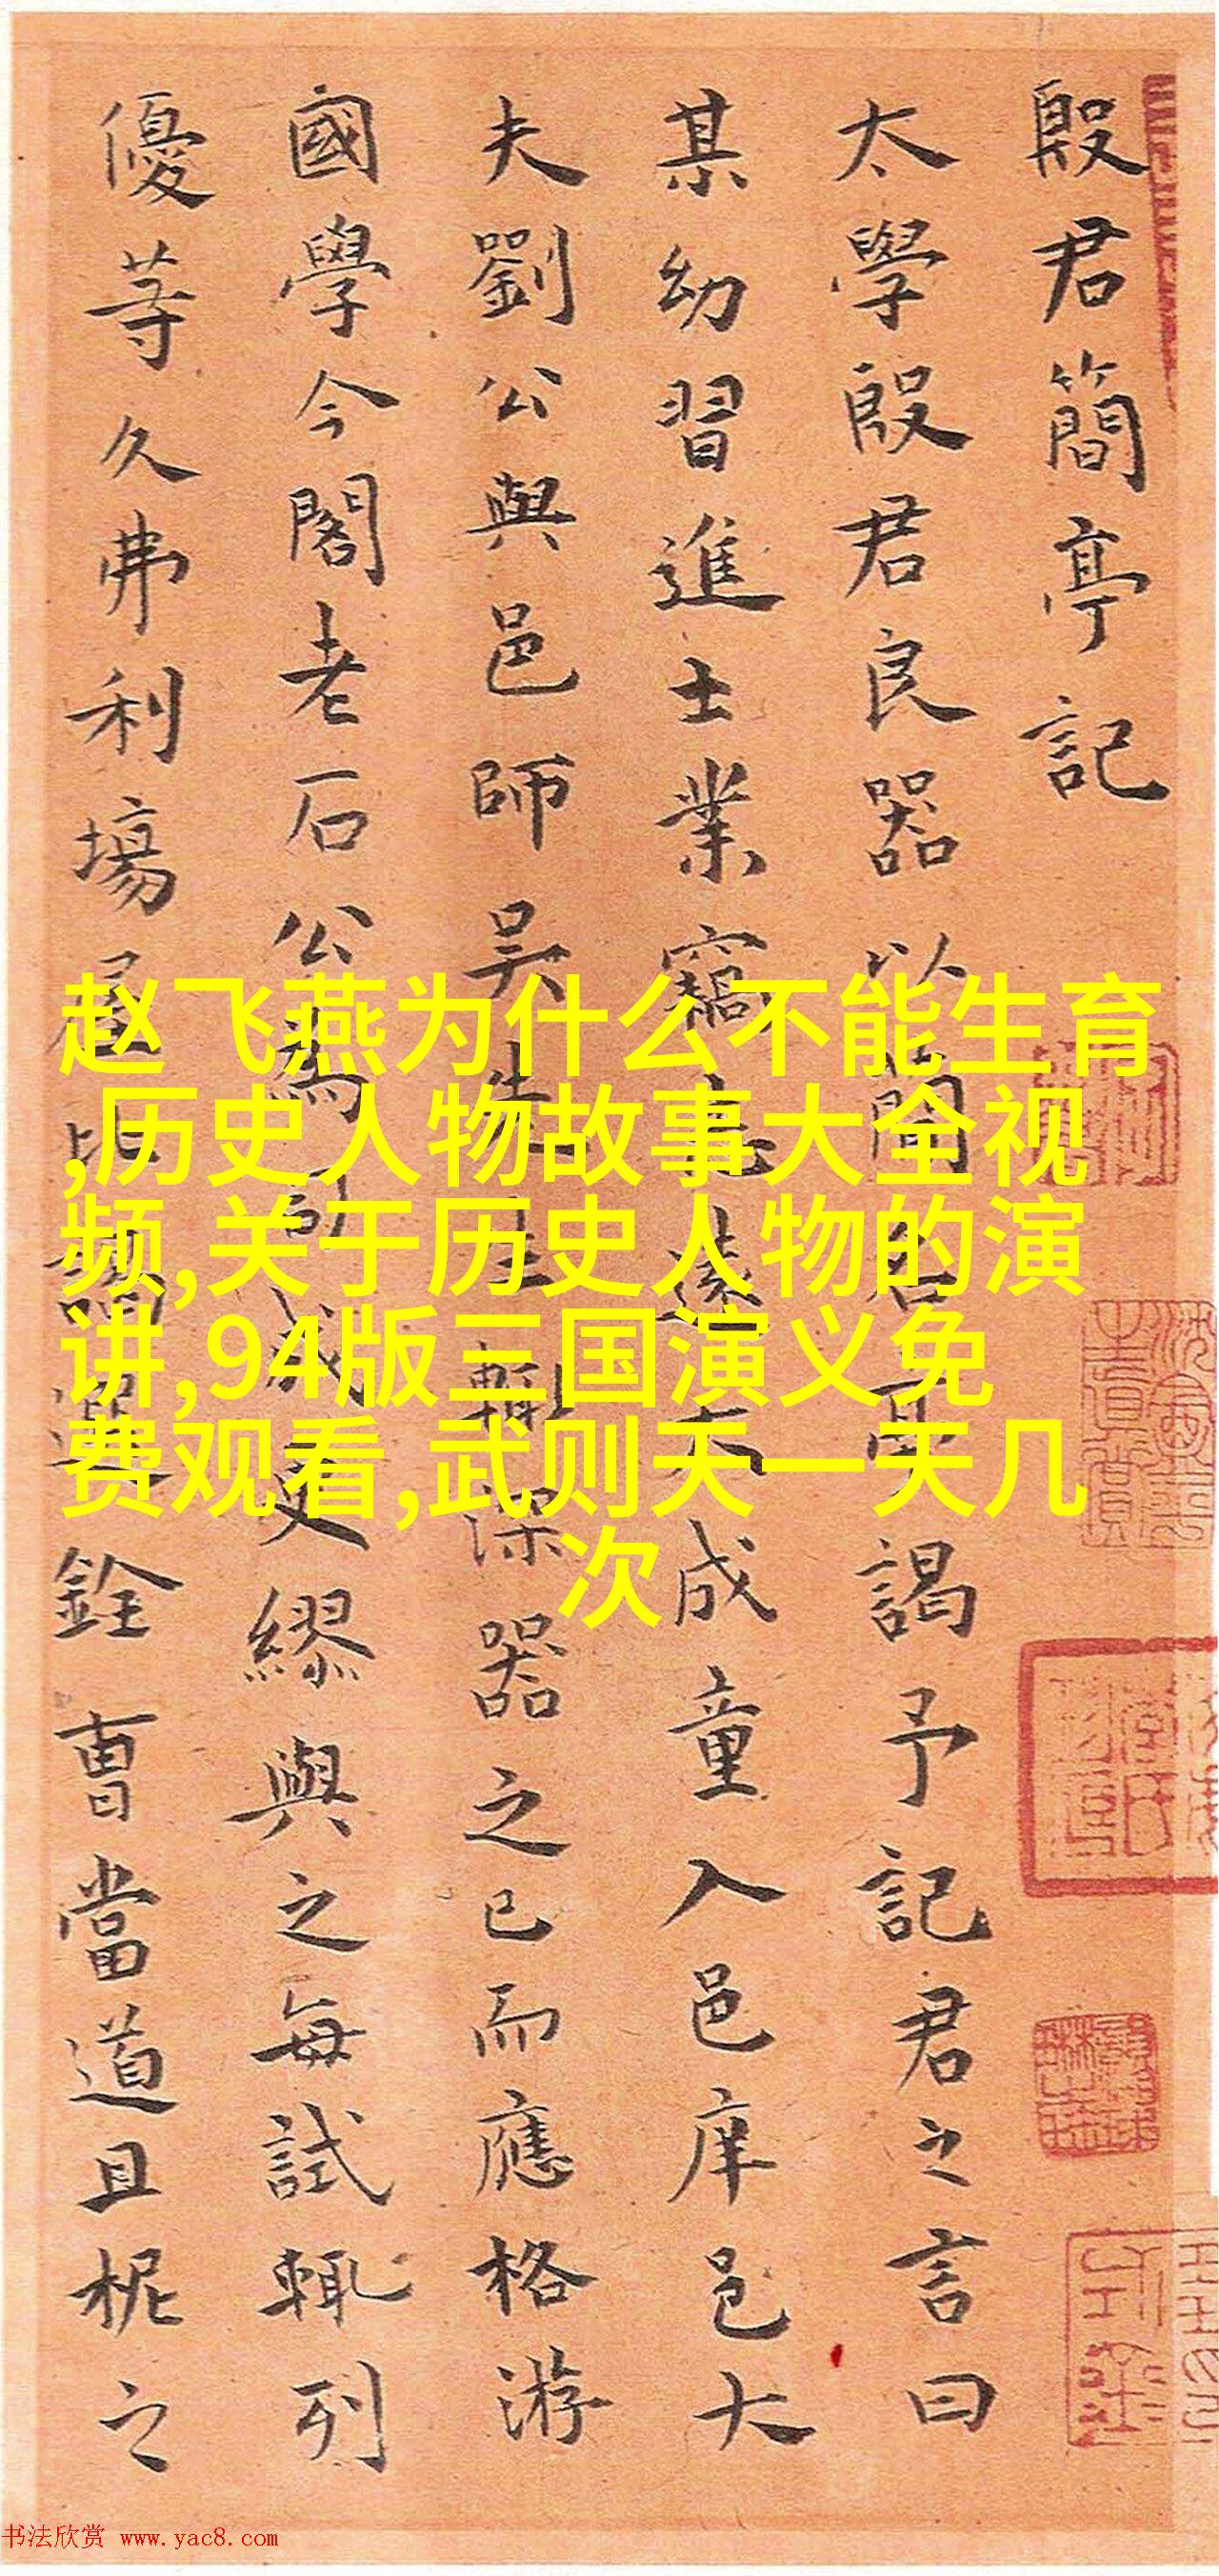 殷君簡亭記
太學殷君良器以簡名亭謁予記君之言曰
某幼習進士業竊志遠大成童入邑庠邑大
夫劉公與邑師吳先生輙深器之已而應格游
國學今閣老石公為司成繆與之每試輙列
優等久弗利場屋比謁選銓曹當道且柅之
赵飞燕为什么不能生育
,历史人物故事大全视
频,关于历史人物的演
讲,94版三国演义免
费观看,武则天一天几
次
书法欣赏 www.yac8.com